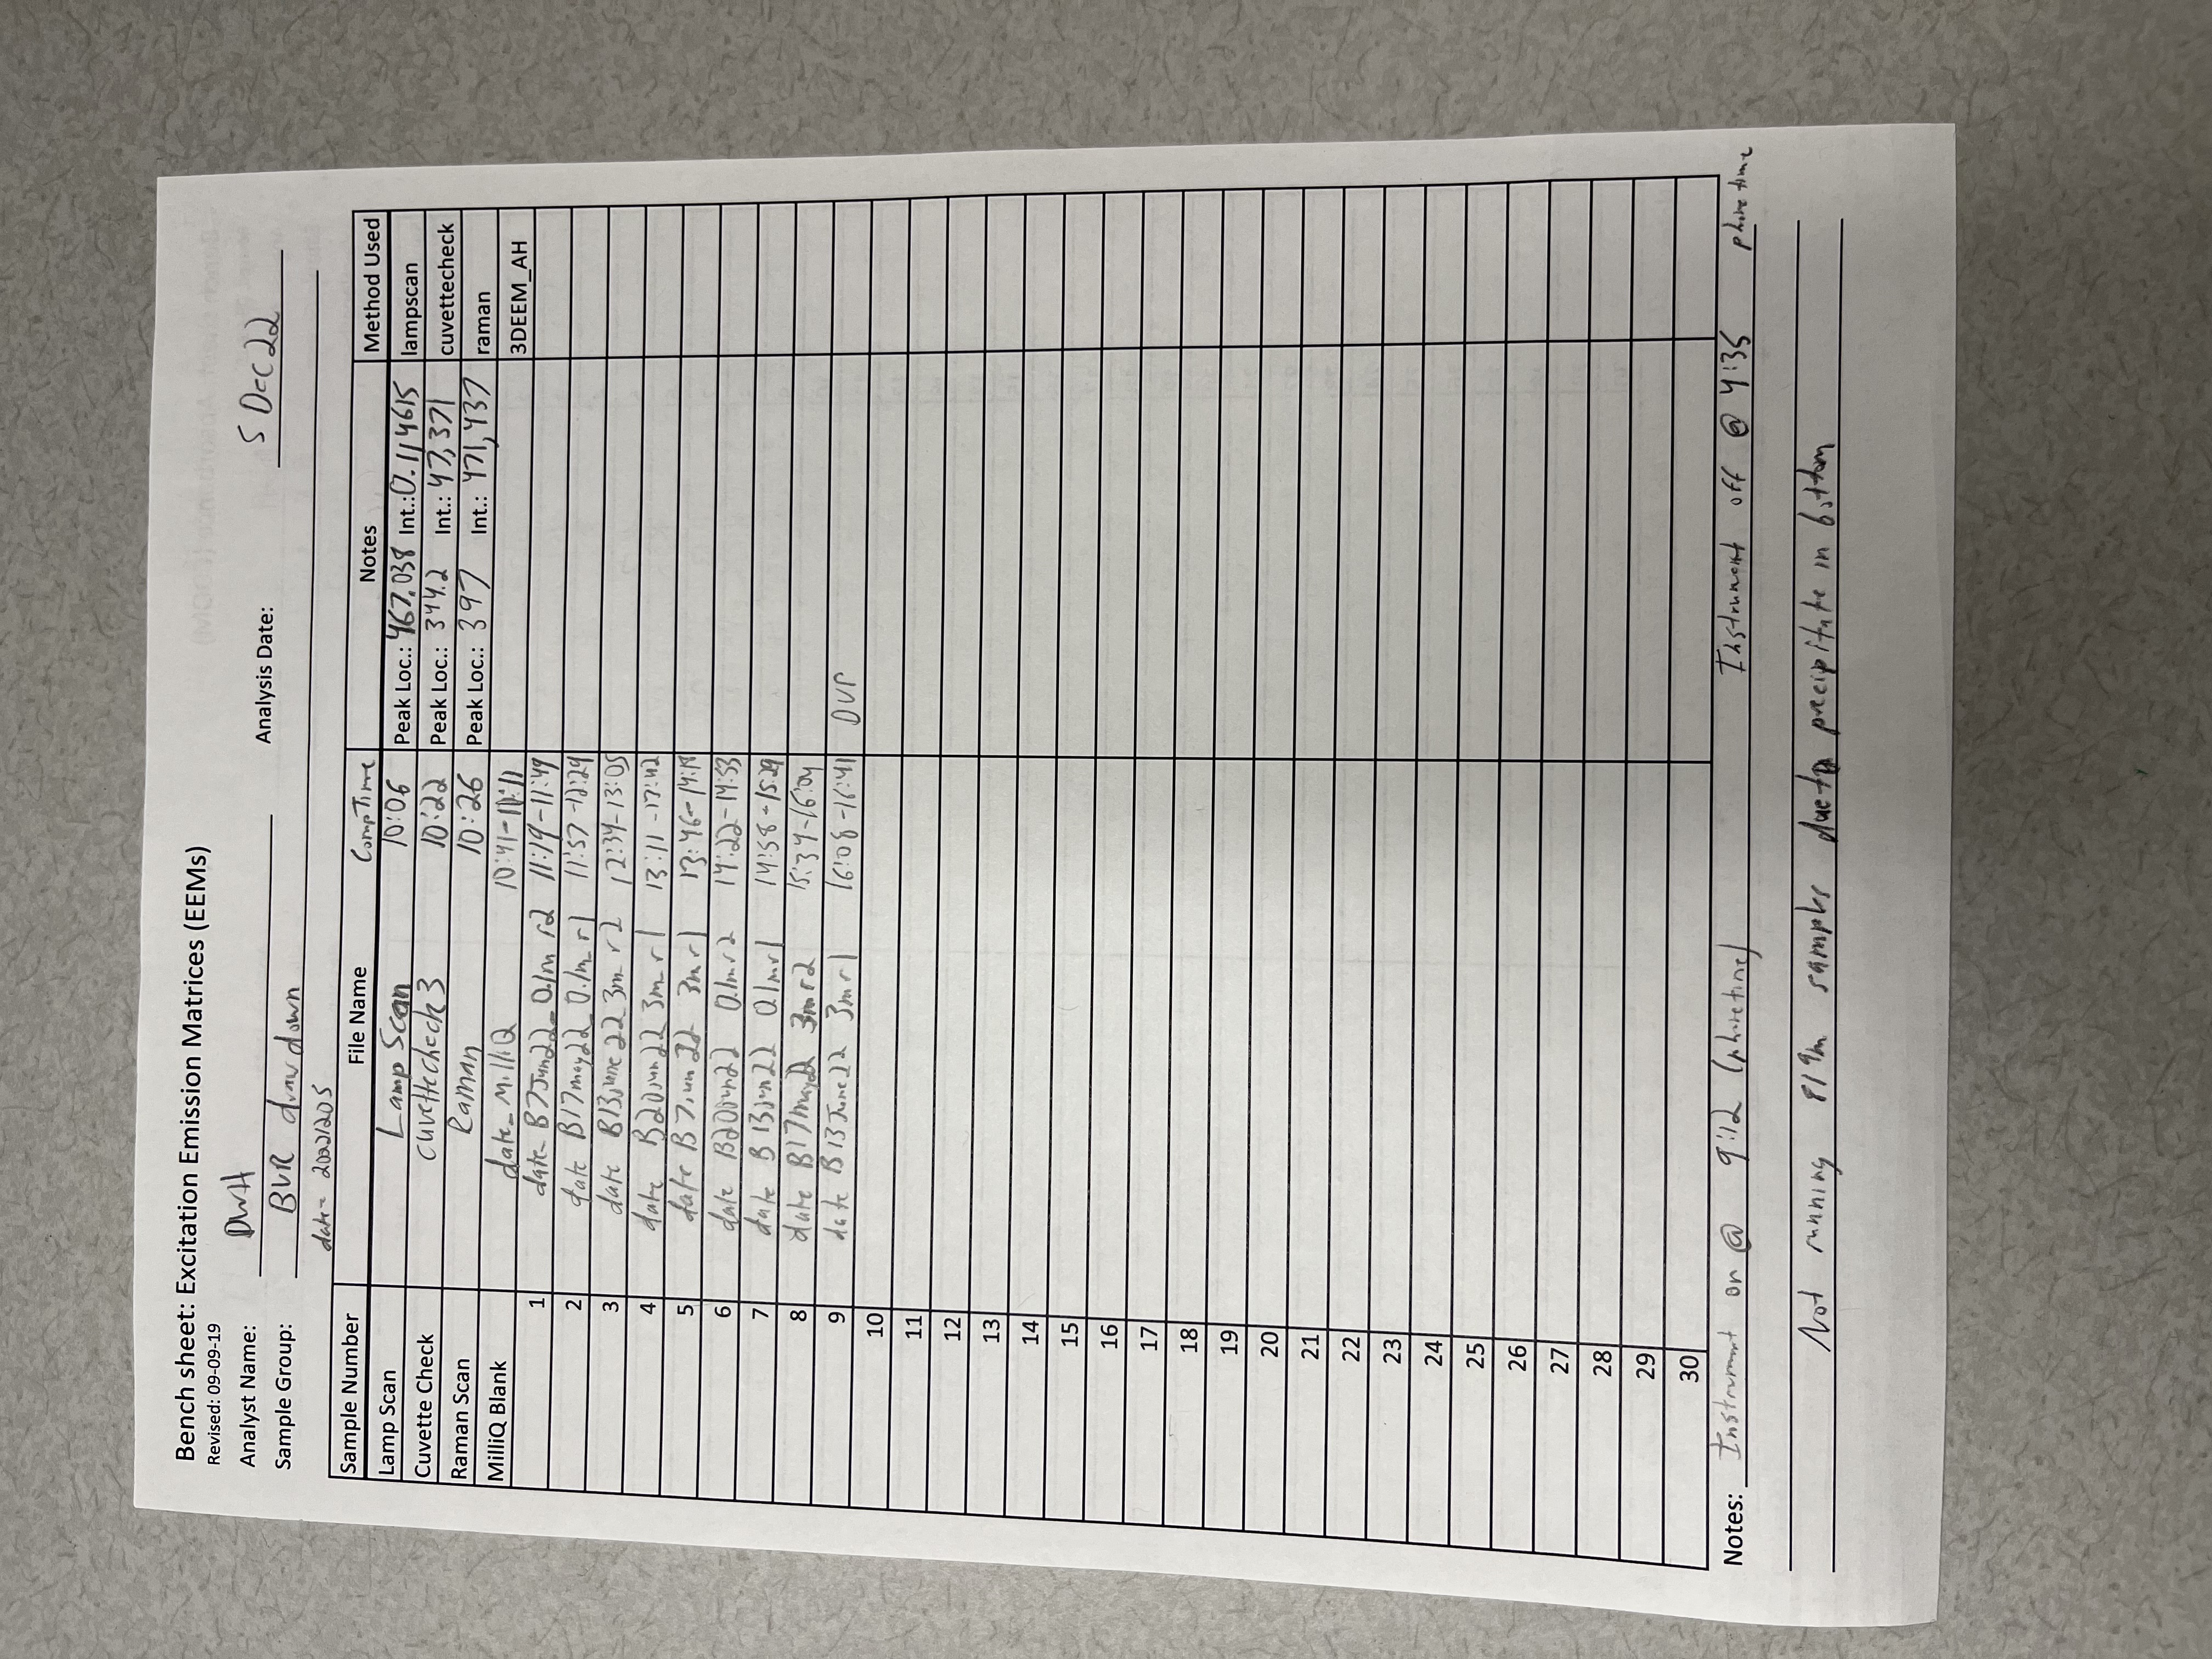 Bench sheet: Excitation Emission Matrices (EEMs)
Revised: 09-09-19
Analyst Name: DWH Analysis Date: 5 Dec 22
Sample Group: BVR drawdown
date= 20221205
Sample Number File Name CompTime Notes Method Used
Lamp Scan Lamp Scan 10:06 Peak Loc.: 467.038 Int.: 0.114615 lampscan
Cuvette Check cuvettecheck3 10:22 Peak Loc.: 344.2 Int.: 47,371 cuvettecheck
Raman Scan Raman 10:26 Peak Loc.: 397 Int.: 471,437 raman
MilliQ Blank date_MilliQ 10:41-11:11 3DEEM_AH
1 date_B7Jun22_0.1m r2 11:19-11:49
2 date B17may22_0.1m_r1 11:57-12:29
3 date B13june22_3m_r2 12:34-13:05
4 date B20jun22_3m_r1 13:11-13:42
5 date B7jun22 3m r1 13:46-14:18
6 date B20jun22 0.1m r2 14:22-14:53
7 date B13jun22 0.1m r1 14:58-15:29
8 date B17may22 3m r2 15:34-16:04
9 date B13June22 3m r1 16:08-16:41 DUP
10
11
12
13
14
15
16
17
18
19
20
21
22
23
24
25
26
27
28
29
30
Notes: Instrument on @ 9:12 (phonetime) Instrument off @ 4:35 phone time
Not running samples due to precipitate in bottom